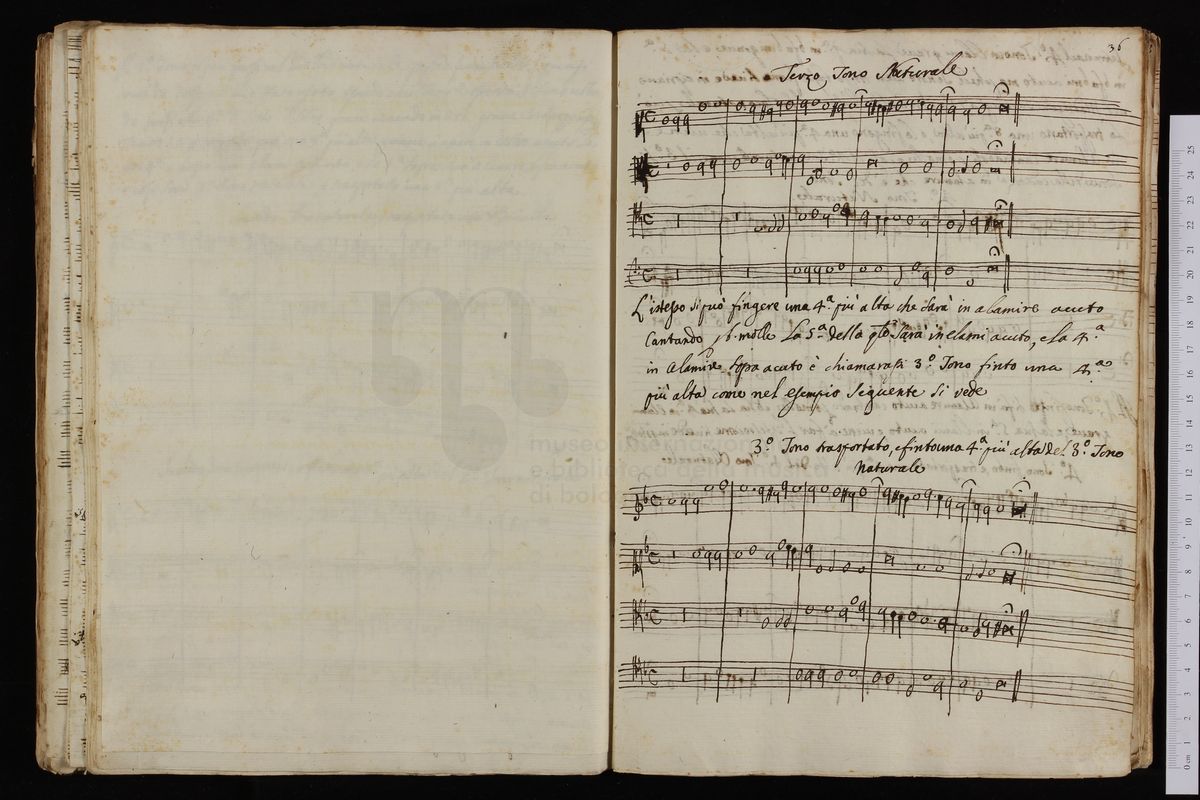 36
Terzo Tono Naturale
L'istesso si può fingere una 4.ª più alta che sarà in alamire acuto
Cantando b. molle La 5.ª della qle sarà in elami acuto, e la 4.ª
in Alamire sopa acuto è chiamarassi 3.º Tono finto una 4.ª
più alta come nel esempio seguente si vede
3.º Tono trasportato, e finto una 4.ª più alta del 3.º Tono
Naturale
museo internazionale
e biblioteca della
di bolo
0 cm 1 2 3 4 5 6 7 8 9 10 11 12 13 14 15 16 17 18 19 20 21 22 23 24 25